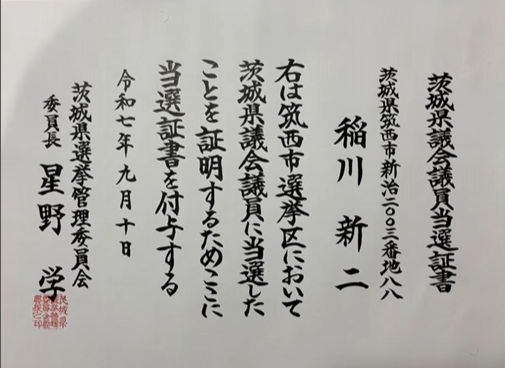 茨城県議会議員当選証書
茨城県筑西市新治二〇〇三番地八八
稲川新二
右は筑西市選挙区において
茨城県議会議員に当選した
ことを証明するためここに
当選証書を付与する
令和七年九月十日
茨城県選挙管理委員会
委員長 星野学